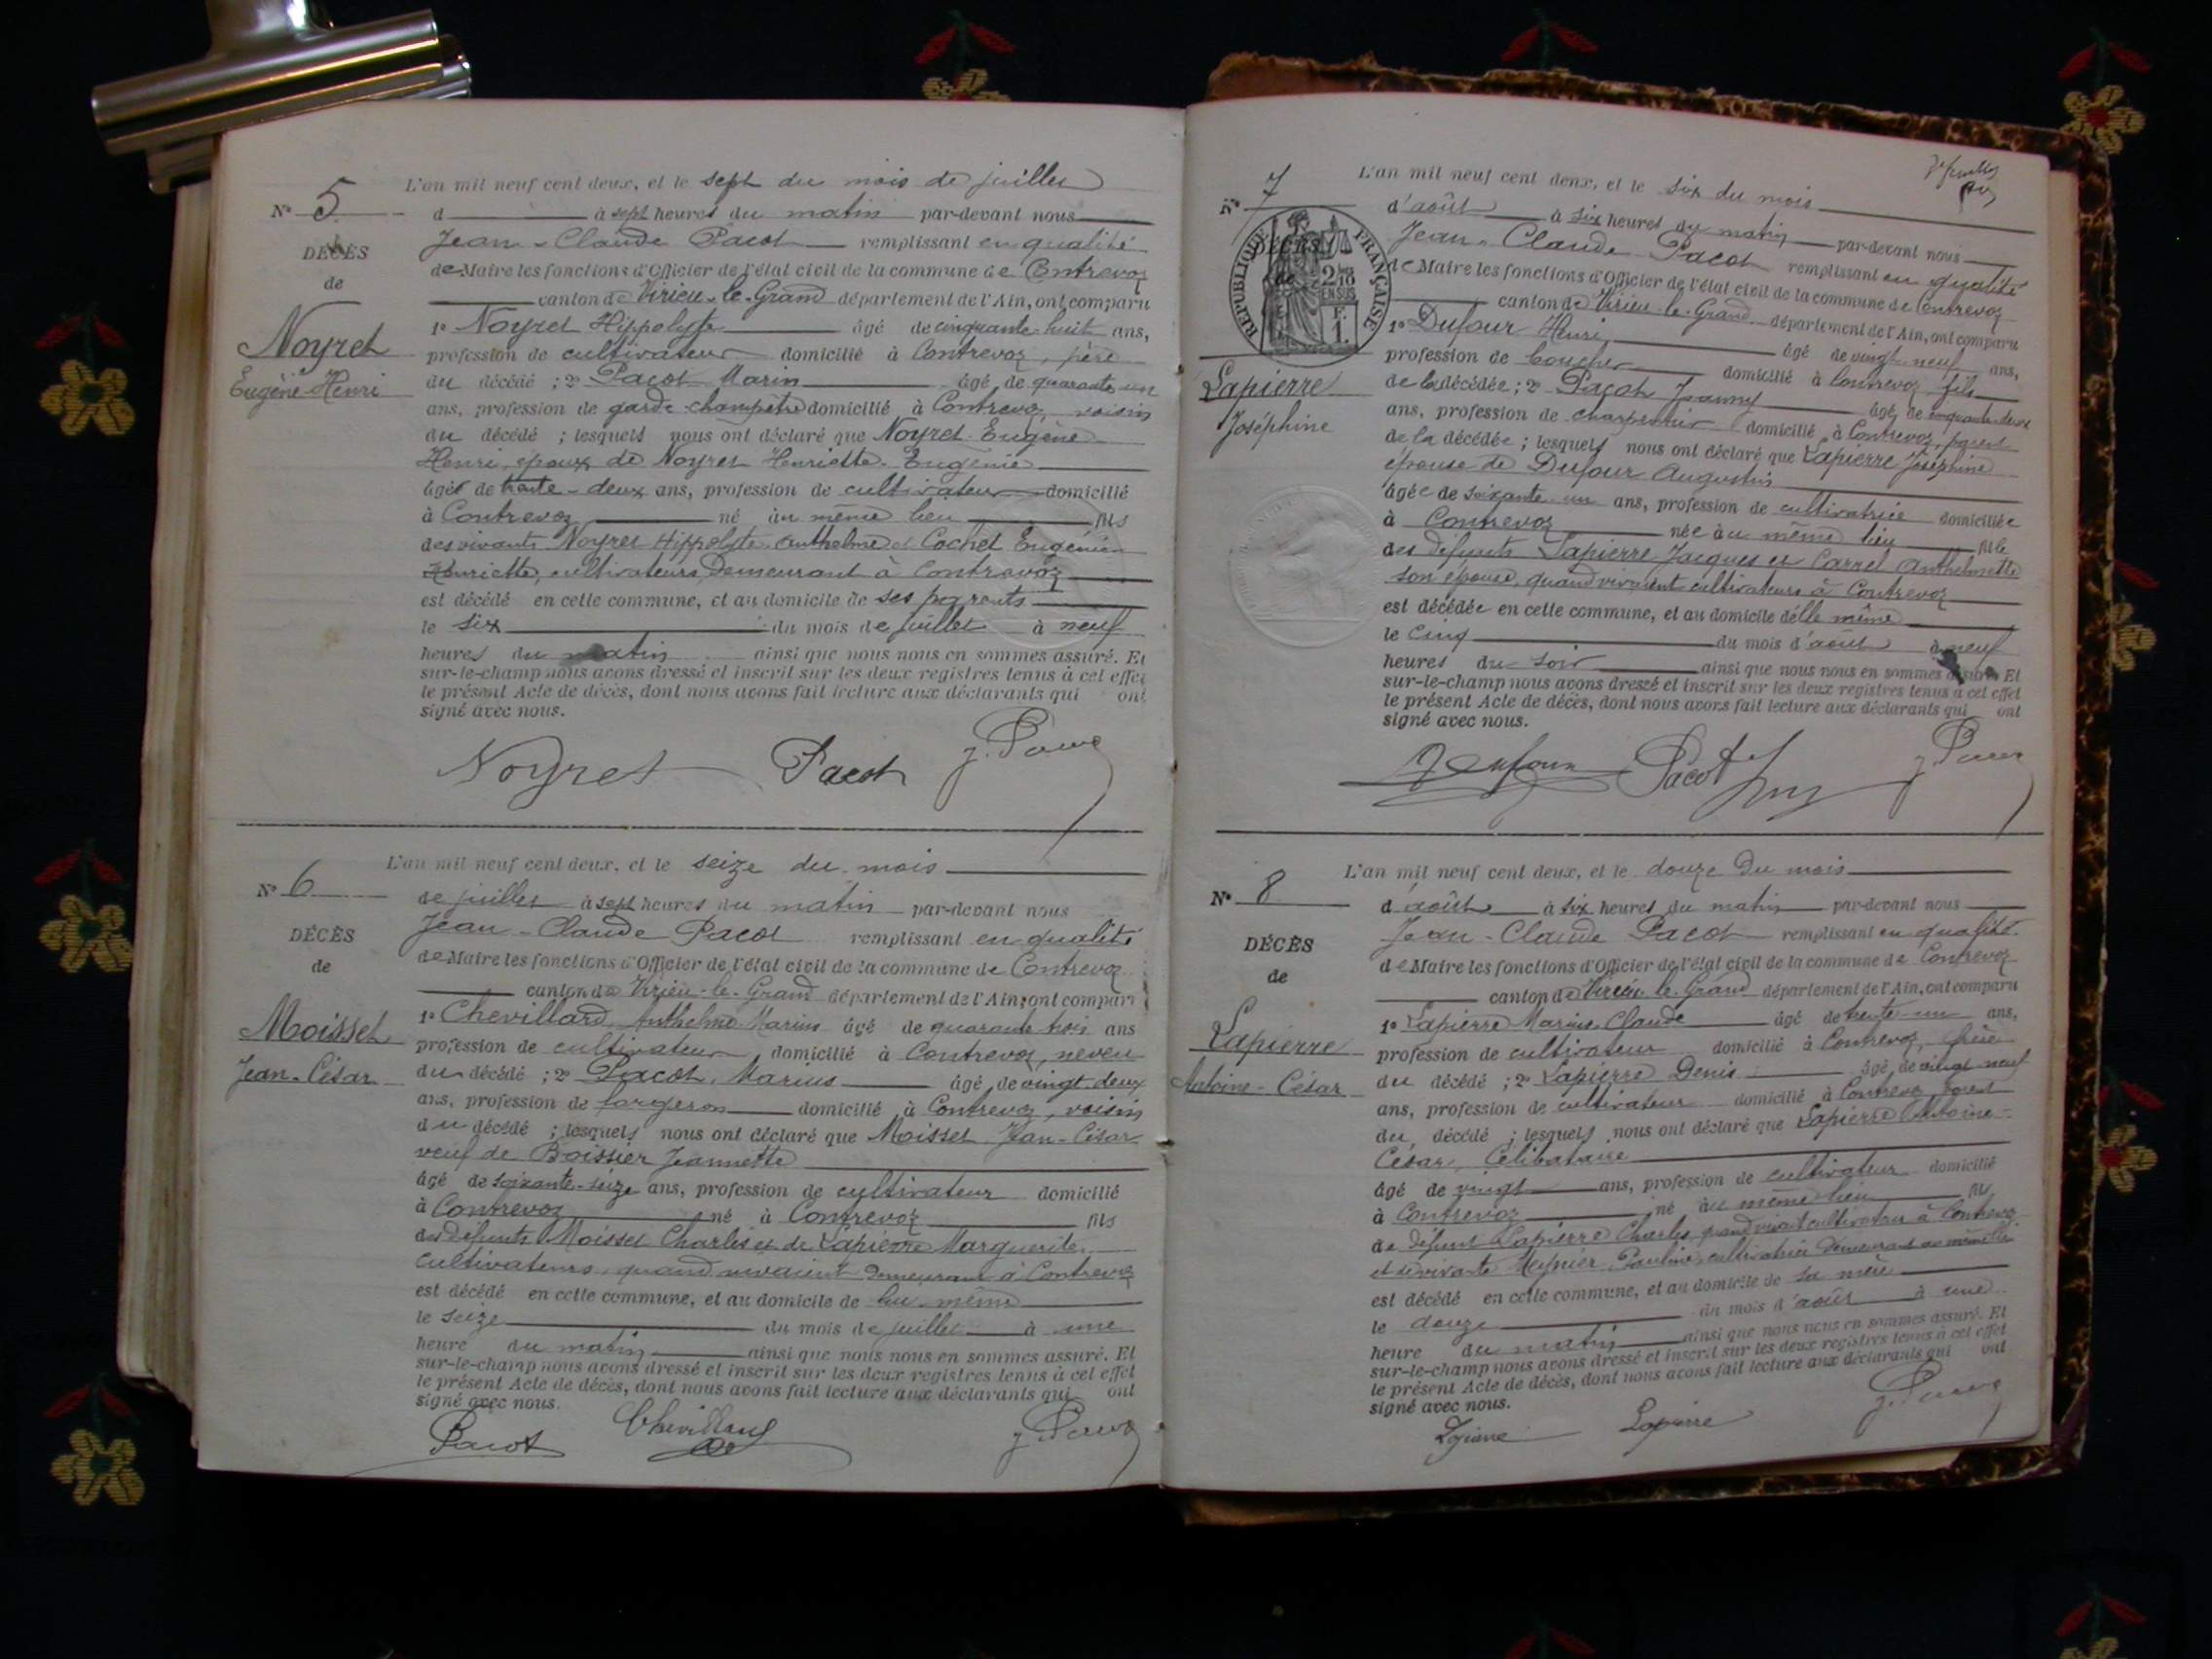 L'an mil neuf cent deux, et le sept du mois de juillet
N° 5
d à sept heures du matin par-devant nous
DÉCÈS
Jean-Claude Pacot remplissant en qualité
de
de Maire les fonctions d'Officier de l'état civil de la commune de Contrevoz
canton de Virieu-le-Grand département de l'Ain, ont comparu
Noyret
Eugène-Henri
1° Noyret Hippolyte âgé de cinquante-huit ans,
profession de cultivateur domicilié à Contrevoz, père
du décédé ; 2° Pacot Marin âgé de quarante un
ans, profession de garde-champêtre domicilié à Contrevoz, voisin
du décédé ; lesquels nous ont déclaré que Noyret Eugène
Henri, époux de Noyret Henriette Eugénie
âgé de trente-deux ans, profession de cultivateur domicilié
à Contrevoz né au même lieu fils
des vivants Noyret Hippolyte Anthelme et Cochet Eugénie
Henriette, cultivateurs demeurant à Contrevoz
est décédé en cette commune, et au domicile de ses parents
le six du mois de juillet à neuf
heures du matin ainsi que nous nous en sommes assuré. Et
sur-le-champ nous avons dressé et inscrit sur les deux registres tenus à cet effet
le présent Acte de décès, dont nous avons fait lecture aux déclarants qui ont
signé avec nous.
Noyret Pacot
L'an mil neuf cent deux, et le seize du mois
N° 6
de juillet à sept heures du matin par-devant nous
DÉCÈS
Jean-Claude Pacot remplissant en qualité
de
de Maire les fonctions d'Officier de l'état civil de la commune de Contrevoz
canton de Virieu-le-Grand département de l'Ain, ont comparu
Moisset
Jean-César
1° Chevillard Anthelme Marius âgé de quarante trois ans
profession de cultivateur domicilié à Contrevoz, neveu
du décédé ; 2° Pacot Marius âgé de vingt-deux
ans, profession de forgeron domicilié à Contrevoz, voisin
du décédé ; lesquels nous ont déclaré que Moisset Jean-César
veuf de Boissier Jeannette
âgé de soixante-seize ans, profession de cultivateur domicilié
à Contrevoz né à Contrevoz fils
des défunts Moisset Charles et de Lapierre Marguerite,
cultivateurs quand vivaient demeurant à Contrevoz
est décédé en cette commune, et au domicile de lui-même
le seize du mois de juillet à une
heure du matin ainsi que nous nous en sommes assuré. Et
sur-le-champ nous avons dressé et inscrit sur les deux registres tenus à cet effet
le présent Acte de décès, dont nous avons fait lecture aux déclarants qui ont
signé avec nous.
Pacot Chevillard
L'an mil neuf cent deux, et le six du mois
N° 7
d'août à six heures du matin par-devant nous
RÉPUBLIQUE FRANÇAISE
DÉCÈS
de
2/10 EN SUS
F. 1.
Jean-Claude Pacot remplissant en qualité
de Maire les fonctions d'Officier de l'état civil de la commune de Contrevoz
canton de Virieu-le-Grand département de l'Ain, ont comparu
Lapierre
Joséphine
1° Dufour Henri âgé de vingt neuf ans,
profession de boucher domicilié à Contrevoz, fils
de la décédée ; 2° Pacot Joanny âgé de cinquante-deux
ans, profession de charpentier domicilié à Contrevoz, parent
de la décédée ; lesquels nous ont déclaré que Lapierre Joséphine
épouse de Dufour Augustin
âgée de soixante-un ans, profession de cultivatrice domiciliée
à Contrevoz née au même lieu fille
des défunts Lapierre Jacques et Carrel Anthelmette
son épouse, quand vivaient cultivateurs à Contrevoz
est décédée en cette commune, et au domicile d'elle même
le cinq du mois d'août à neuf
heures du soir ainsi que nous nous en sommes assuré. Et
sur-le-champ nous avons dressé et inscrit sur les deux registres tenus à cet effet
le présent Acte de décès, dont nous avons fait lecture aux déclarants qui ont
signé avec nous.
Dufour Pacot
L'an mil neuf cent deux, et le douze du mois
N° 8
d'août à six heures du matin par-devant nous
DÉCÈS
Jean-Claude Pacot remplissant en qualité
de
de Maire les fonctions d'Officier de l'état civil de la commune de Contrevoz
canton de Virieu-le-Grand département de l'Ain, ont comparu
Lapierre
Antoine-César
1° Lapierre Marius Claude âgé de trente-un ans,
profession de cultivateur domicilié à Contrevoz, frère
du décédé ; 2° Lapierre Denis âgé de vingt-neuf
ans, profession de cultivateur domicilié à Contrevoz, parent
du décédé ; lesquels nous ont déclaré que Lapierre Antoine-
César, Célibataire
âgé de vingt ans, profession de cultivateur domicilié
à Contrevoz né au même lieu fils
de défunt Lapierre Charles, quand vivait cultivateur à Contrevoz
et de vivante Meynier Pauline, cultivatrice demeurant au même lieu
est décédé en cette commune, et au domicile de sa mère
le douze du mois d'août à une
heure du matin ainsi que nous nous en sommes assuré. Et
sur-le-champ nous avons dressé et inscrit sur les deux registres tenus à cet effet
le présent Acte de décès, dont nous avons fait lecture aux déclarants qui ont
signé avec nous.
Lapierre Lapierre